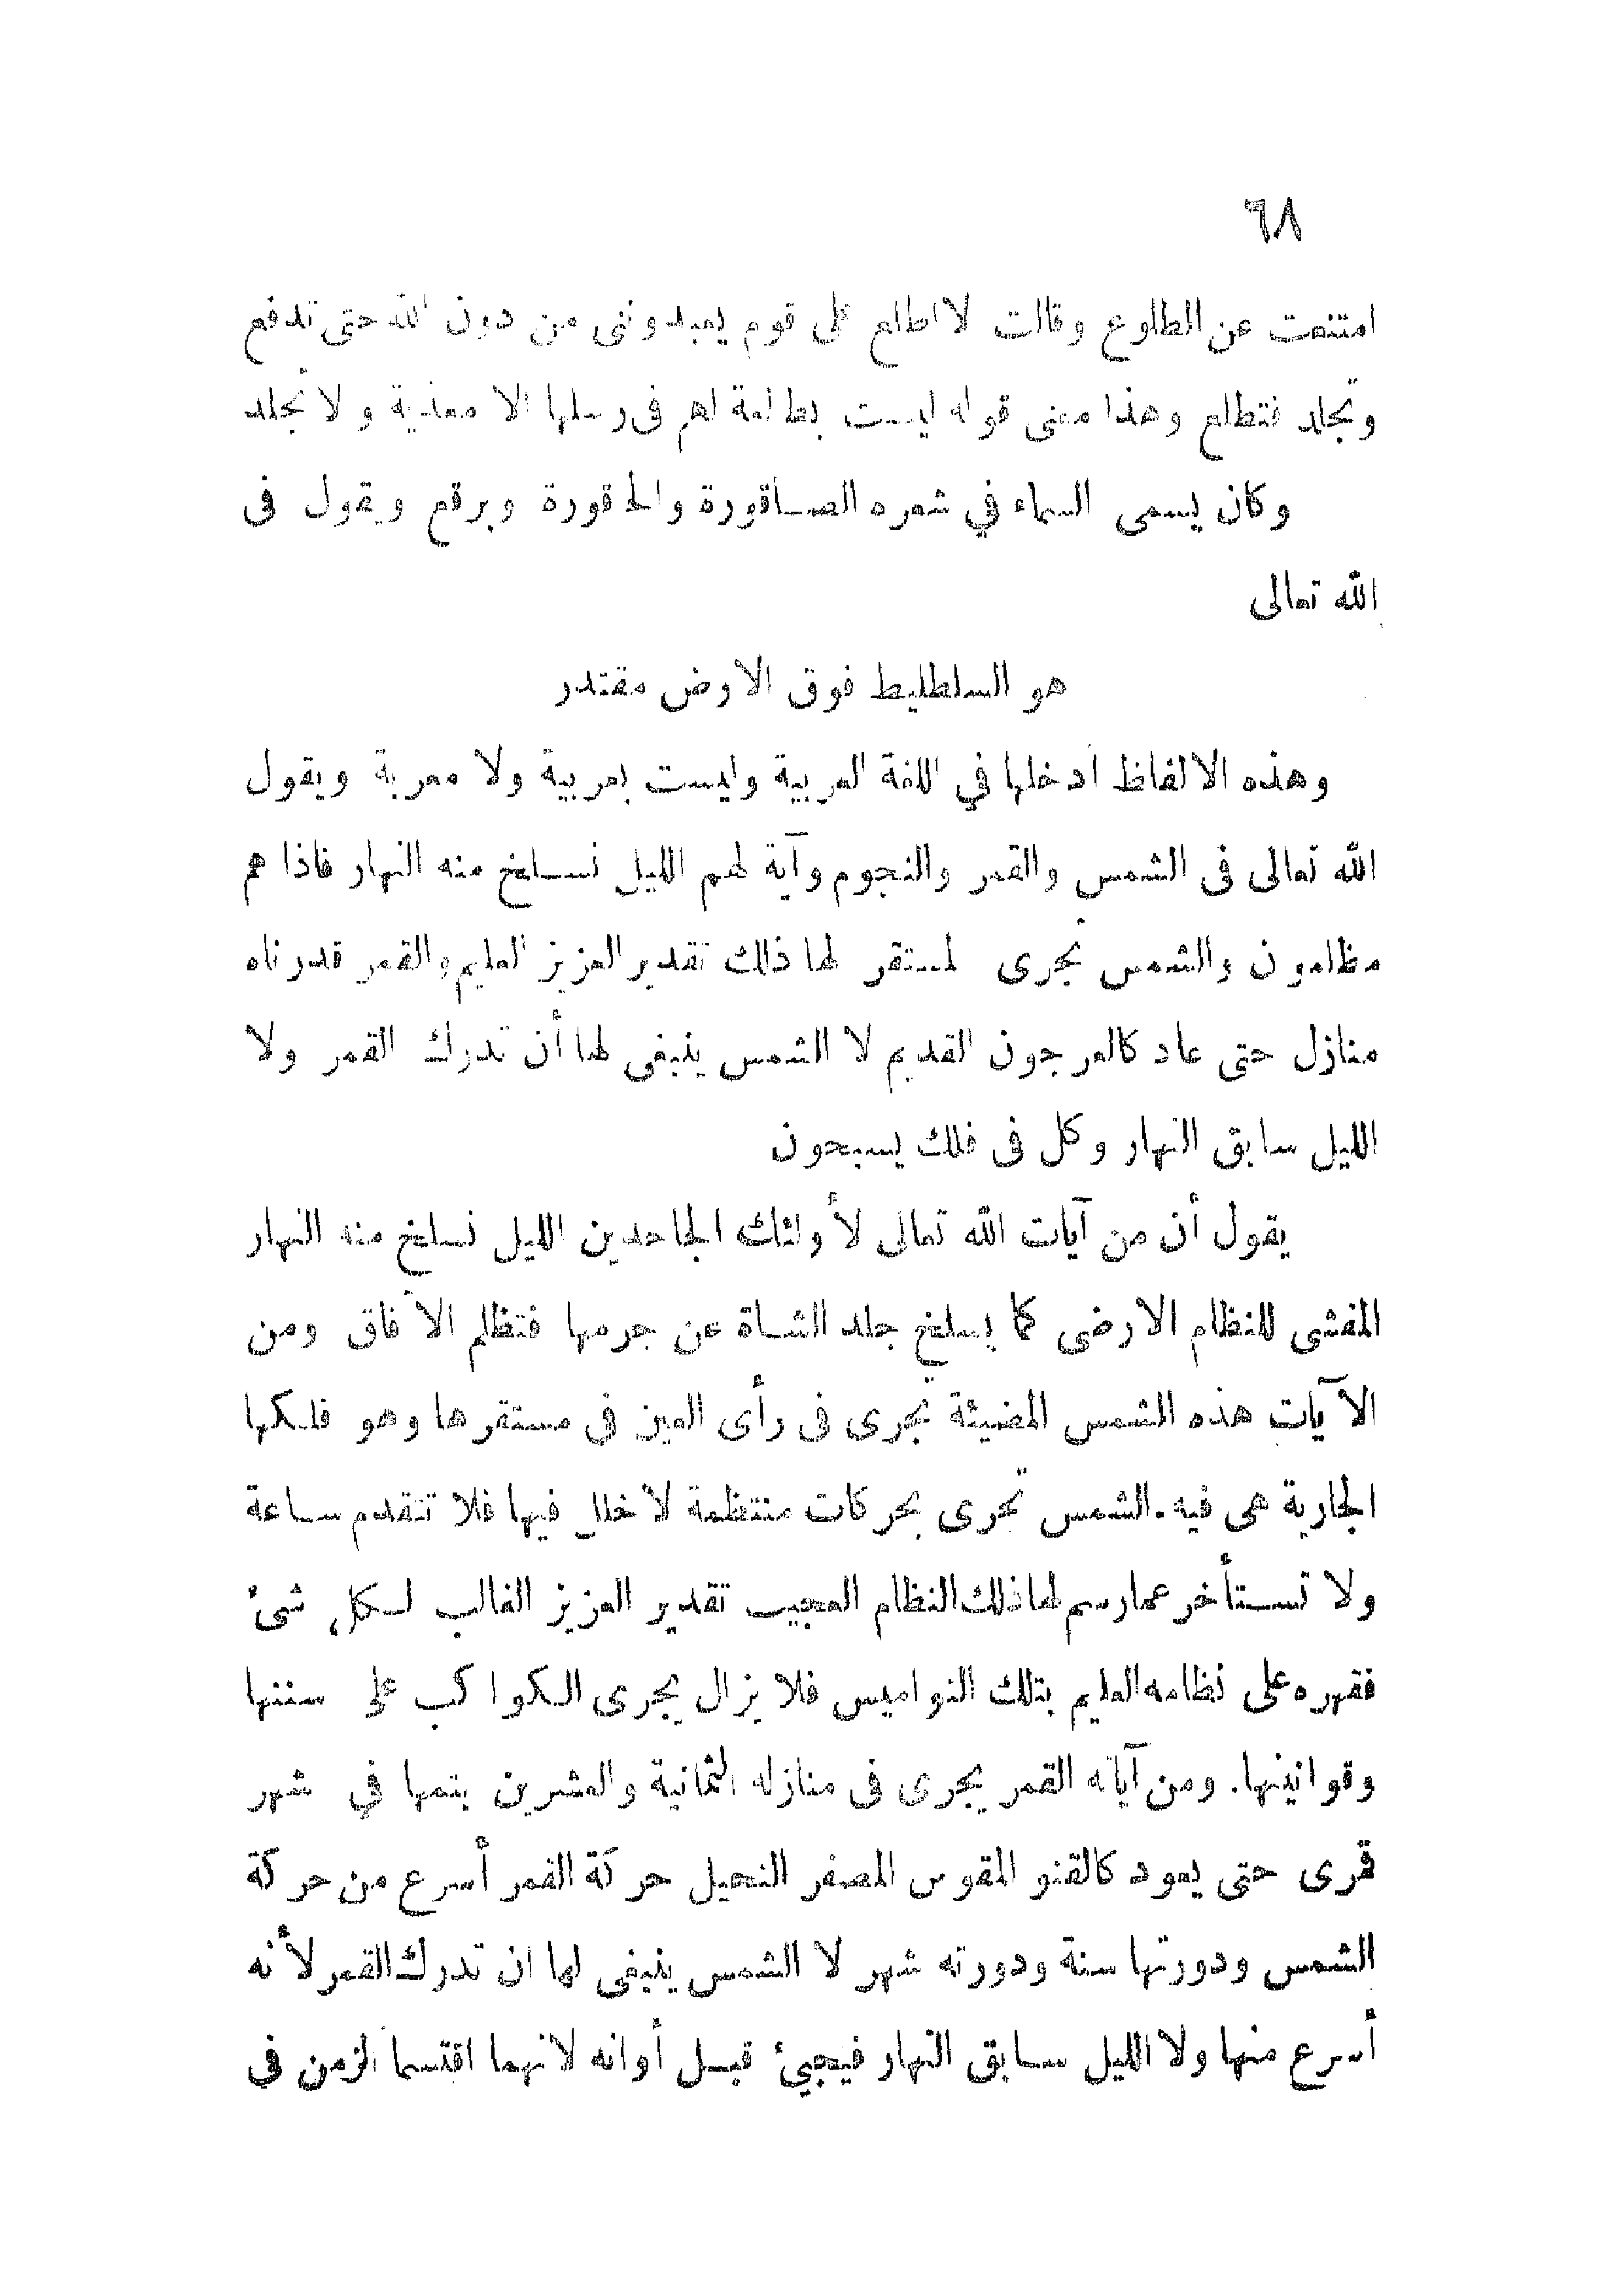 ٦٨
امتنعت عن الطلوع وقالت لا اطلع على قوم يعبدونني من دون الله حتى تدفع
وتجلد فتطلع وهذا معنى قوله ليست بطالعة لهم فى رسلها الا معذبة ولا تجلد
وكان يسمى السماء في شعره الصاقورة والحاقورة وبرقع ويقول فى
الله تعالى
هو السلطليط فوق الارض مقتدر
وهذه الالفاظ ادخلها في اللغة العربية وليست بعربية ولا معربة ويقول
الله تعالى فى الشمس والقمر والنجوم وآية لهم الليل نسلخ منه النهار فاذا هم
مظلمون والشمس تجرى لمستقر لها ذلك تقدير العزيز العليم والقمر قدرناه
منازل حتى عاد كالعرجون القديم لا الشمس ينبغى لها أن تدرك القمر ولا
الليل سابق النهار وكل فى فلك يسبحون
يقول أن من آيات الله تعالى لأولئك الجاحدين الليل نسلخ منه النهار
المغشى للنظام الارضى كما يسلخ جلد الشاة عن جرمها فتظلم الآفاق ومن
الآيات هذه الشمس المضيئة تجرى فى رأى العين فى مستقرها وهو فلكها
الجارية هى فيه. الشمس تجرى بحركات منتظمة لا خلل فيها فلا تتقدم ساعة
ولا تستأخر عما رسم لها ذلك النظام العجيب تقدير العزيز الغالب لكل شئ
فقهره على نظامه العليم بتلك النواميس فلا يزال يجرى الكواكب على سننها
وقوانينها. ومن آياته القمر يجرى فى منازله الثمانية والعشرين يتمها في شهر
قمرى حتى يعود كالقنو المقوس المصفر النحيل حركة القمر أسرع من حركة
الشمس ودورتها سنة ودورته شهر لا الشمس ينبغى لها ان تدرك القمر لأنه
أسرع منها ولا الليل سابق النهار فيجيئ قبل أوانه لانهما اقتسما الزمن فى